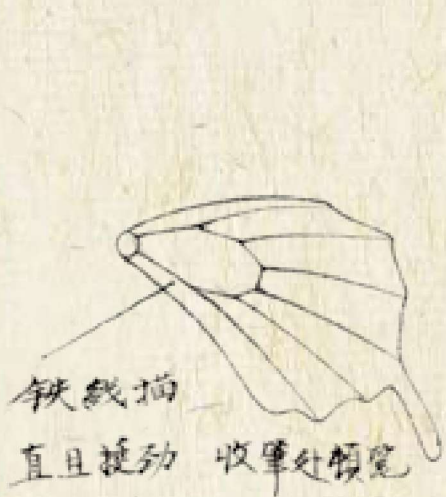 铁线描
直且挺劲 收笔处顿笔